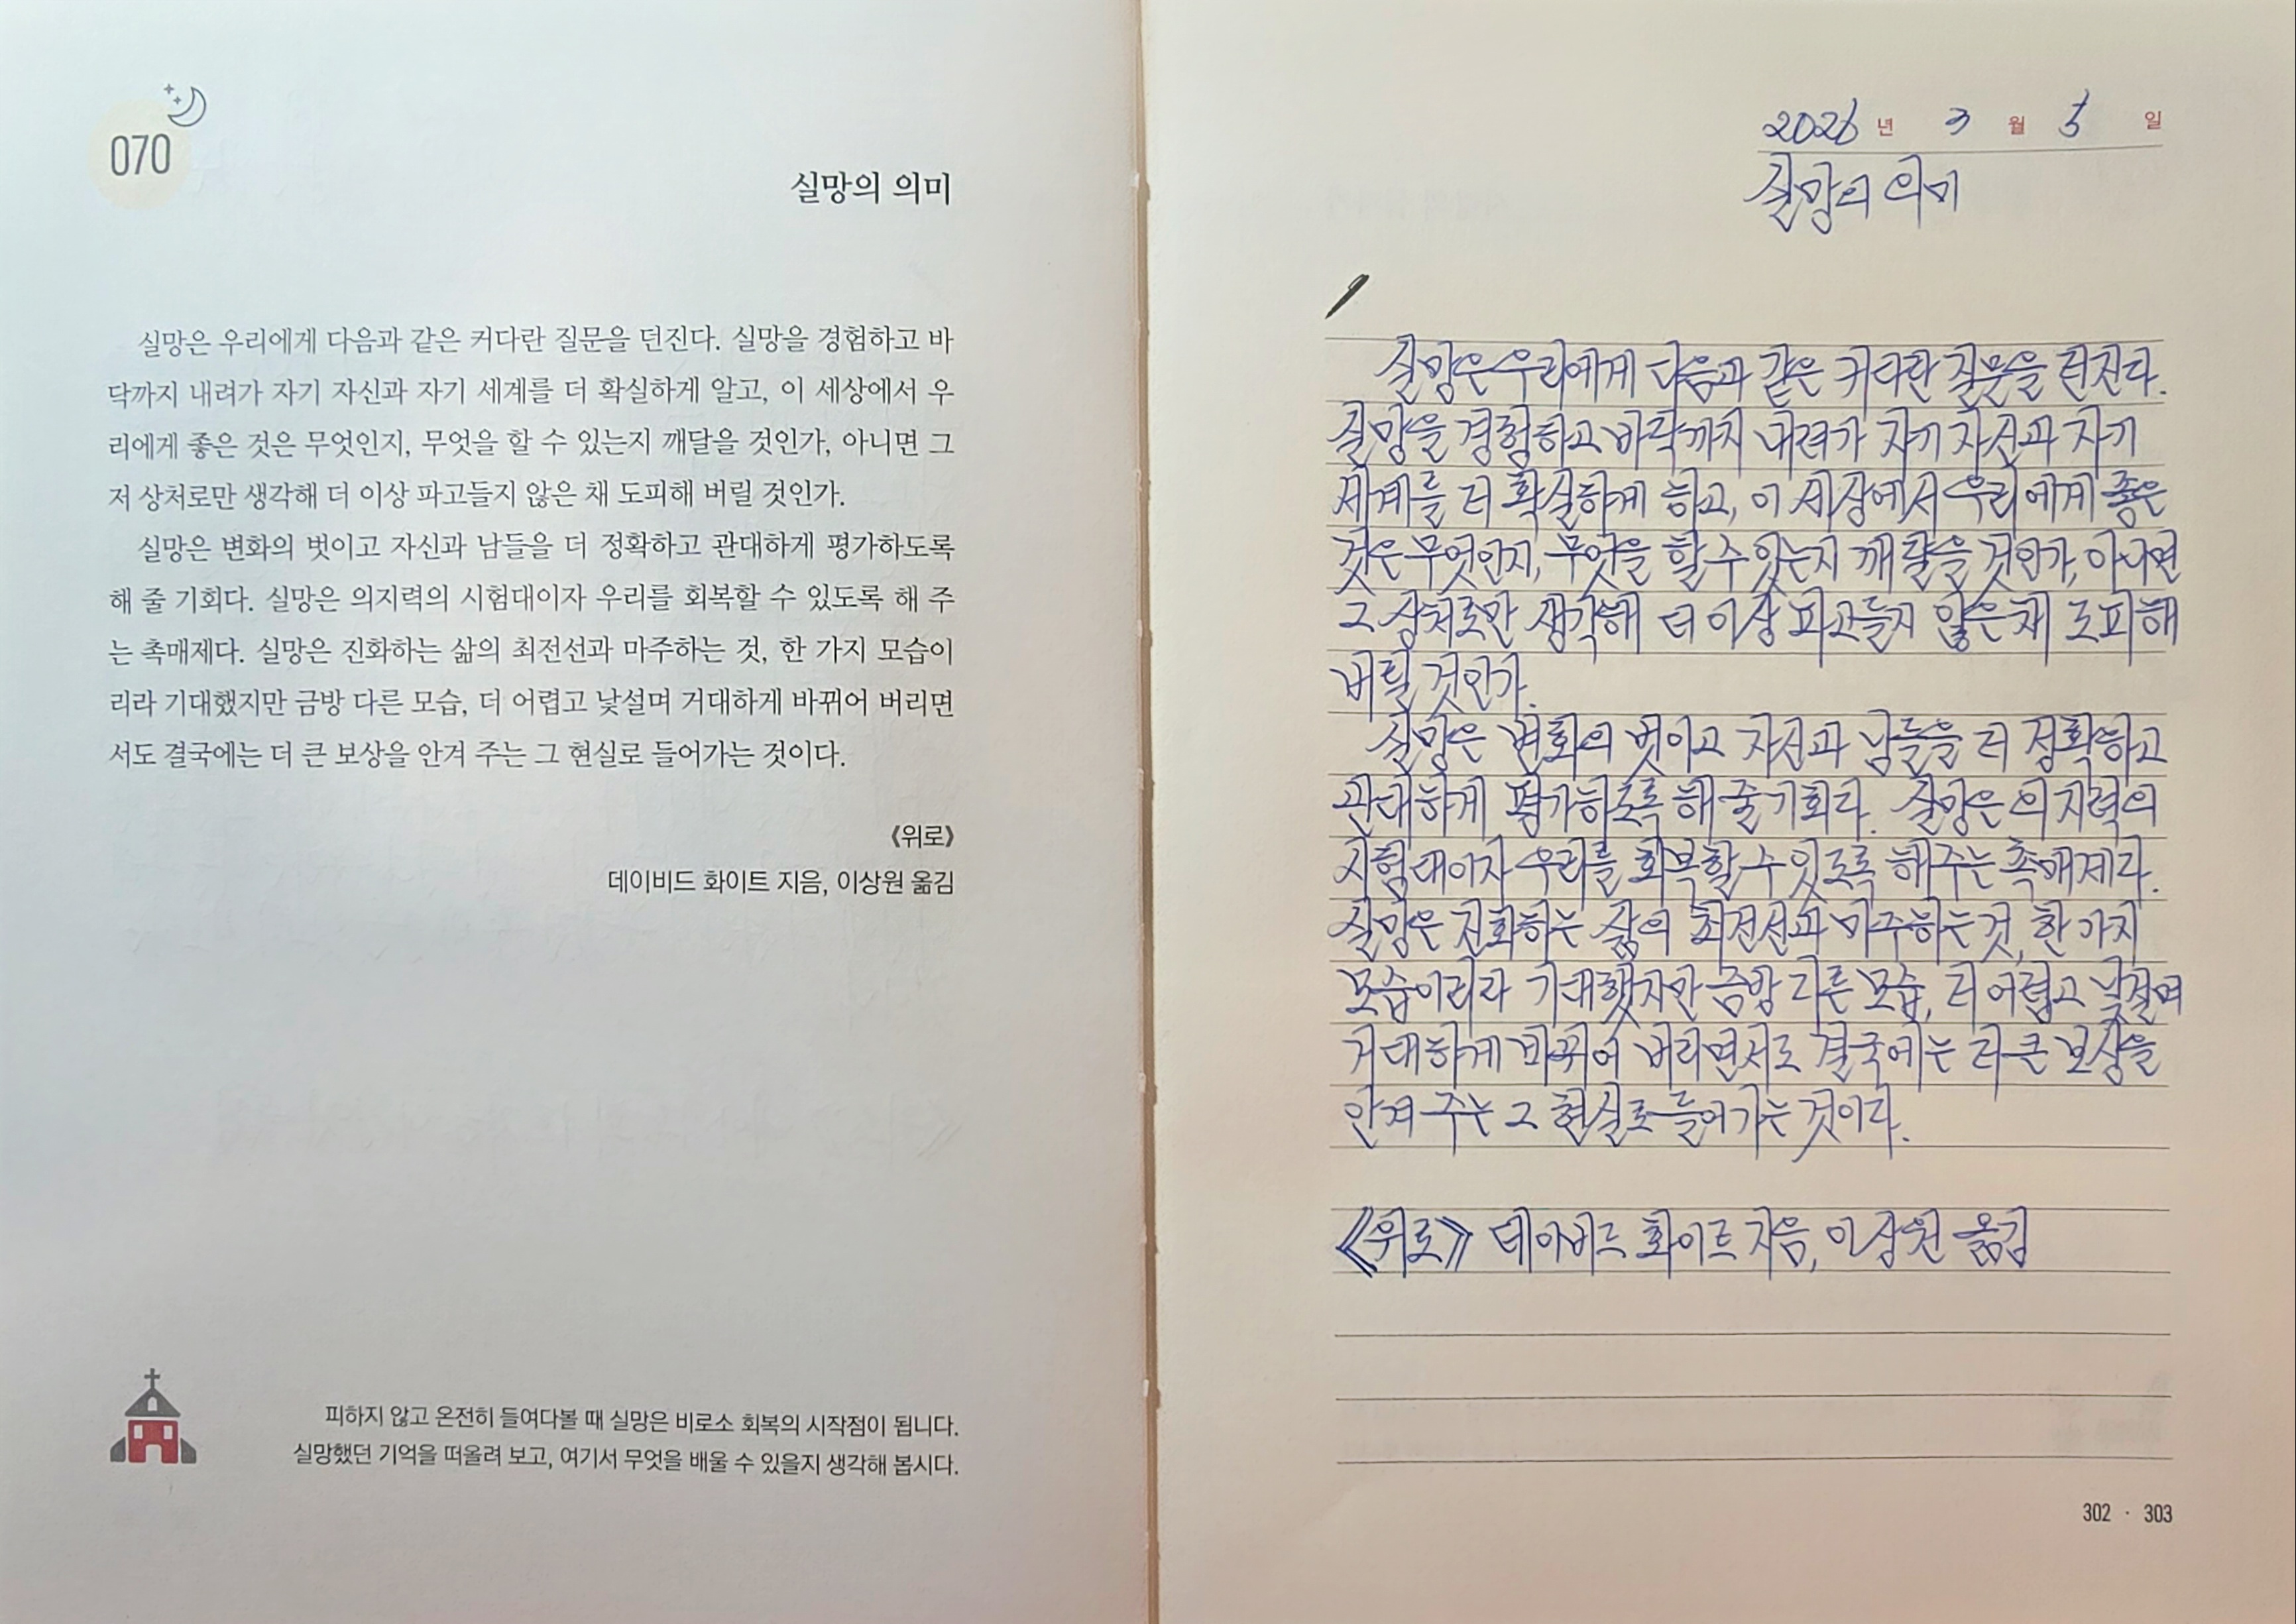 070
실망의 의미
실망은 우리에게 다음과 같은 커다란 질문을 던진다. 실망을 경험하고 바
닥까지 내려가 자기 자신과 자기 세계를 더 확실하게 알고, 이 세상에서 우
리에게 좋은 것은 무엇인지, 무엇을 할 수 있는지 깨달을 것인가, 아니면 그
저 상처로만 생각해 더 이상 파고들지 않은 채 도피해 버릴 것인가.
실망은 변화의 벗이고 자신과 남들을 더 정확하고 관대하게 평가하도록
해 줄 기회다. 실망은 의지력의 시험대이자 우리를 회복할 수 있도록 해 주
는 촉매제다. 실망은 진화하는 삶의 최전선과 마주하는 것, 한 가지 모습이
리라 기대했지만 금방 다른 모습, 더 어렵고 낯설며 거대하게 바뀌어 버리면
서도 결국에는 더 큰 보상을 안겨 주는 그 현실로 들어가는 것이다.
《위로》
데이비드 화이트 지음, 이상원 옮김
피하지 않고 온전히 들여다볼 때 실망은 비로소 회복의 시작점이 됩니다.
실망했던 기억을 떠올려 보고, 여기서 무엇을 배울 수 있을지 생각해 봅시다.
2026년 3월 5일
실망의 의미
실망은 우리에게 다음과 같은 커다란 질문을 던진다.
실망을 경험하고 바닥까지 내려가 자기 자신과 자기
세계를 더 확실하게 하고, 이 세상에서 우리에게 좋은
것은 무엇인지, 무엇을 할 수 있는지 깨달을 것인가, 아니면
그 상처로만 생각해 더 이상 파고들지 않은 채 도피해
버릴 것인가.
실망은 변화의 벗이고 자신과 남들을 더 정확하고
관대하게 평가하도록 해 줄 기회다. 실망은 의지력의
시험대이자 우리를 회복할 수 있도록 해 주는 촉매제다.
실망은 진화하는 삶의 최전선과 마주하는 것, 한 가지
모습이리라 기대했지만 금방 다른 모습, 더 어렵고 낯설며
거대하게 바뀌어 버리면서도 결국에는 더 큰 보상을
안겨 주는 그 현실로 들어가는 것이다.
《위로》 데이비드 화이트 지음, 이상원 옮김
302 · 303